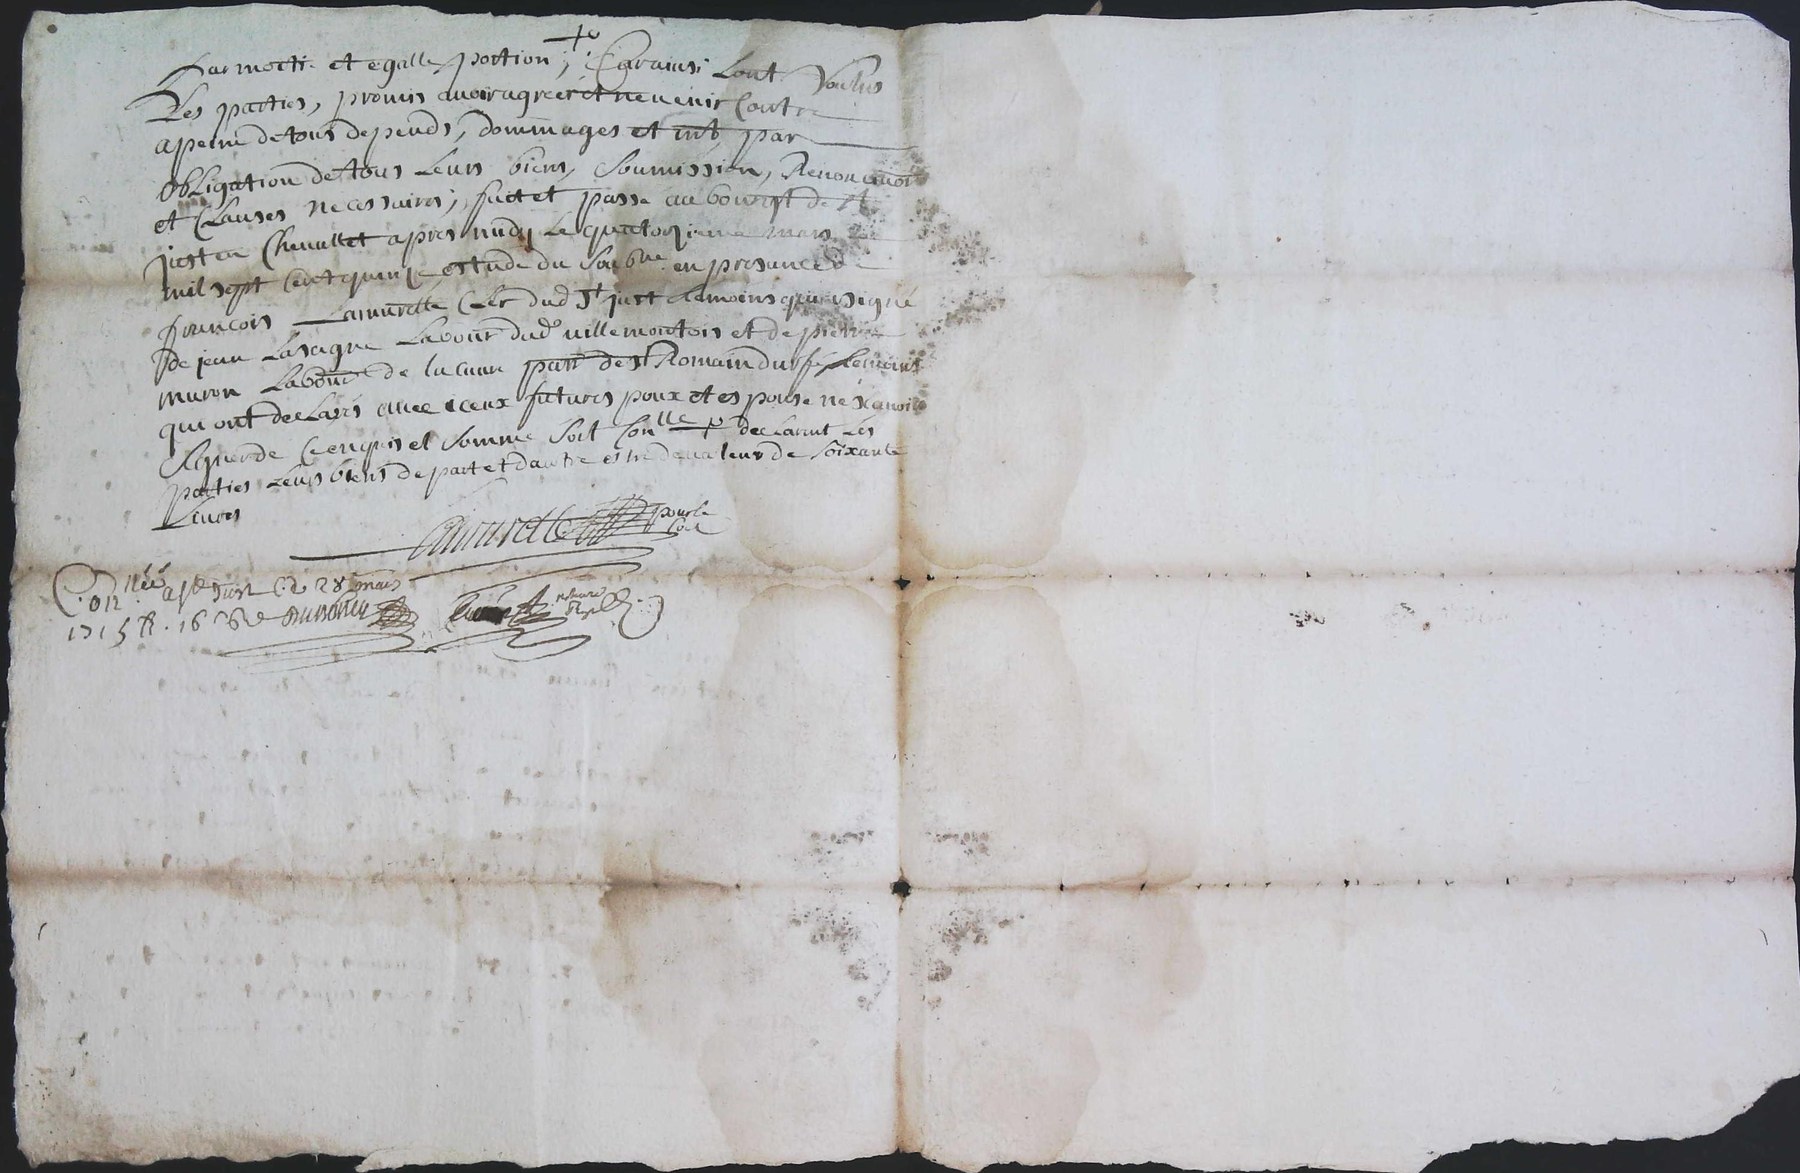 Par moitié et egalle portion, Car ainsi Lont Voulus
Les parties, promis avoir agreer et ne venir Contre
a peine de tous depends, dommages et intz par
obligation de tous Leurs biens, Soumission, Renon
et Clauses necessaires, fait et passé au bourgt de St
just en Chevallet apres midy Le quatorzieme mars
mil sept Cent quinze estude du Soubne en presance de
francois Lamurette Clerc dud St just temoins qui a signé
de jean Lasagne Labour dud villemontois et de pierre
muron Labour de parr de St Romain durfé temoins
qui ont declarés avec iceux futurs poux et espouse ne scavoir
signer de ce enquis et sommé Soit Conllé declarent Les
parties Leurs biens de part et dautre estre de valeur de soixante
Livres
Lamurette pour le
Con
Conllée a St Just Ce 28 mars
1715 R. 16
notaire
Royal